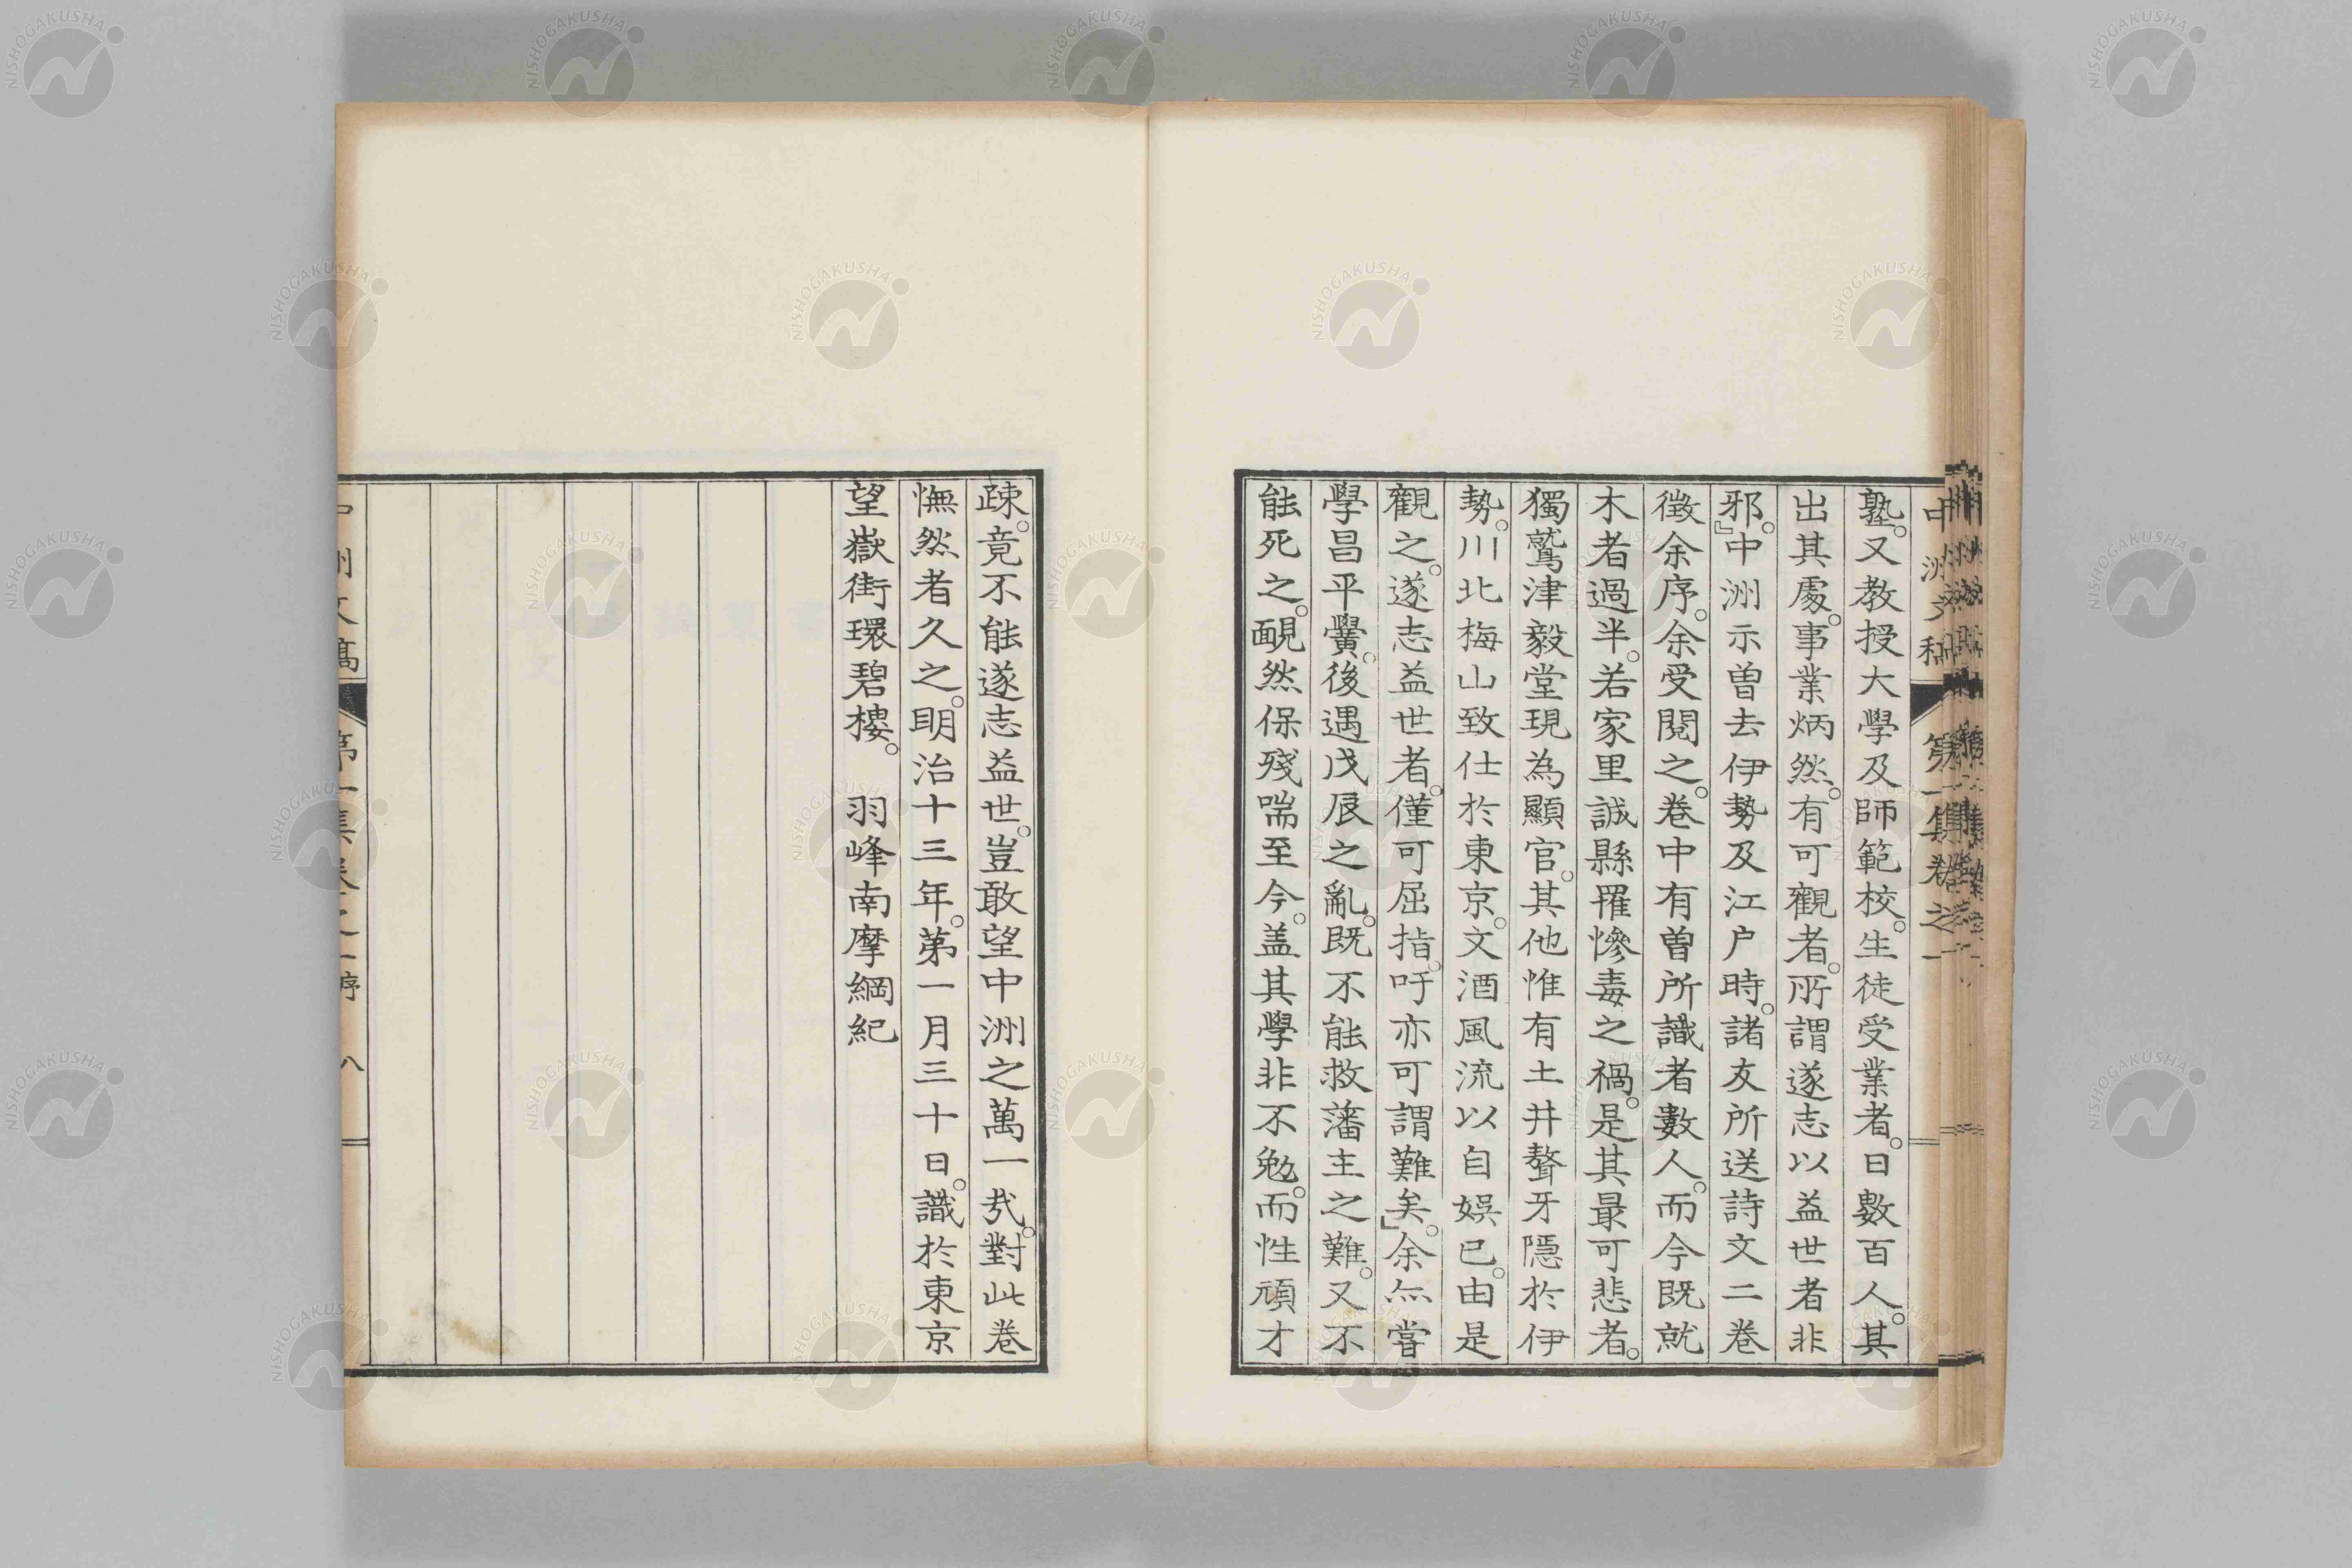 塾。又教授大學及師範校。生徒受業者。日數百人。其
出其處。事業炳然。有可觀者。所謂遂志以益世者非
邪。』中洲示曽去伊勢及江戸時。諸友所送詩文二卷
徵余序。余受閱之。卷中有曽所識者數人。而今既就
木者過半。若家里誠縣罹慘毒之禍。是其最可悲者。
獨鷲津毅堂現為顯官。其他惟有土井聱牙隱於伊
勢。川北梅山致仕於東京。文酒風流以自娯已。由是
觀之。遂志益世者。僅可屈指。吁亦可謂難矣。』余亦嘗
學昌平黌。後遇戊辰之亂。既不能救藩主之難。又不
能死之。靦然保殘喘至今。盖其學非不勉。而性頑才
疎。竟不能遂志益世。豈敢望中洲之萬一哉。對此卷
憮然者久之。明治十三年。第一月三十日。識於東京
望嶽街環碧樓。　羽峰南摩綱紀
洲文稿 第一集卷之一序 八
NISHOGAKUSHA